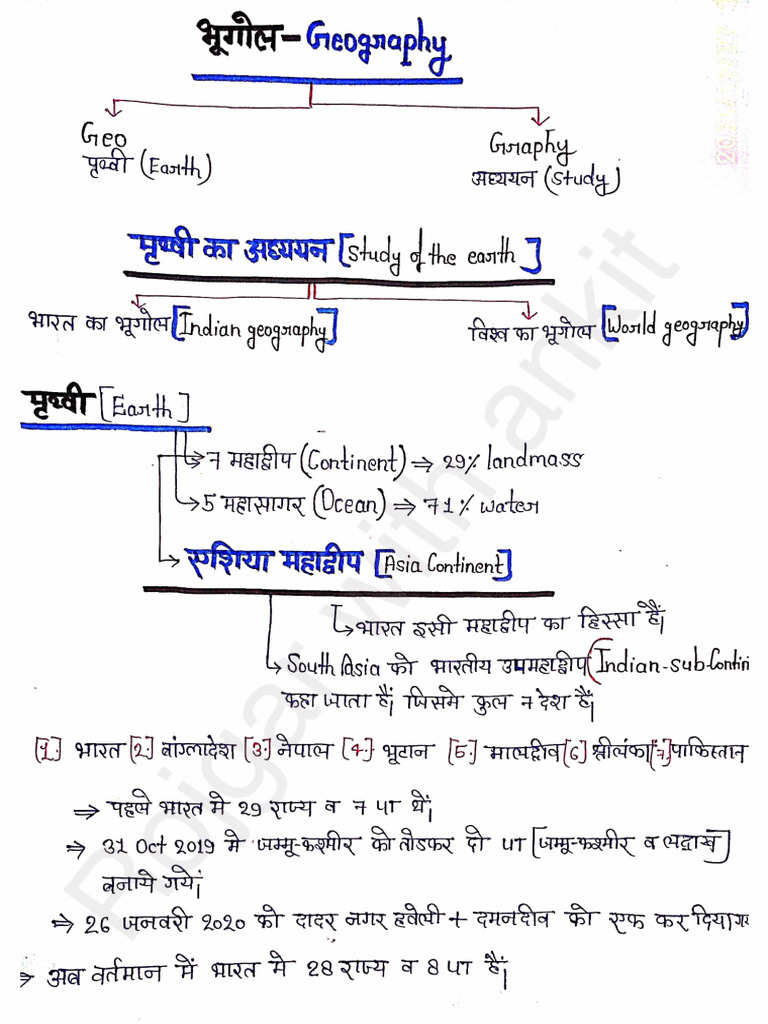 भूगोल - Geography
Geo
पृथ्वी (Earth)
Graphy
अध्ययन (Study)
पृथ्वी का अध्ययन [Study of the earth]
भारत का भूगोल [Indian geography]
विश्व का भूगोल [World geography]
पृथ्वी [Earth]
7 महाद्वीप (Continent) ⇒ 29% landmass
5 महासागर (Ocean) ⇒ 71% water
एशिया महाद्वीप [Asia Continent]
भारत इसी महाद्वीप का हिस्सा हैं|
South Asia को भारतीय उपमहाद्वीप (Indian-sub-Contin
कहा जाता हैं| जिसमे कुल 7 देश हैं|
[1.] भारत [2.] बांग्लादेश [3.] नेपाल [4.] भूटान [5.] मालद्वीव [6] श्रीलंका [7.] पाकिस्तान
⇒ पहले भारत मे 29 राज्य व 7 UT थें|
⇒ 31 Oct 2019 मे जम्मू-कश्मीर को तोडकर दो UT [जम्मू-कश्मीर व लद्दाख]
बनाये गयें|
⇒ 26 जनवरी 2020 को दादर नगर हवेली + दमनदीव को एक कर दिया गय
⇒ अब वर्तमान में भारत मे 28 राज्य व 8 UT हैं|
Rojgar with ankit